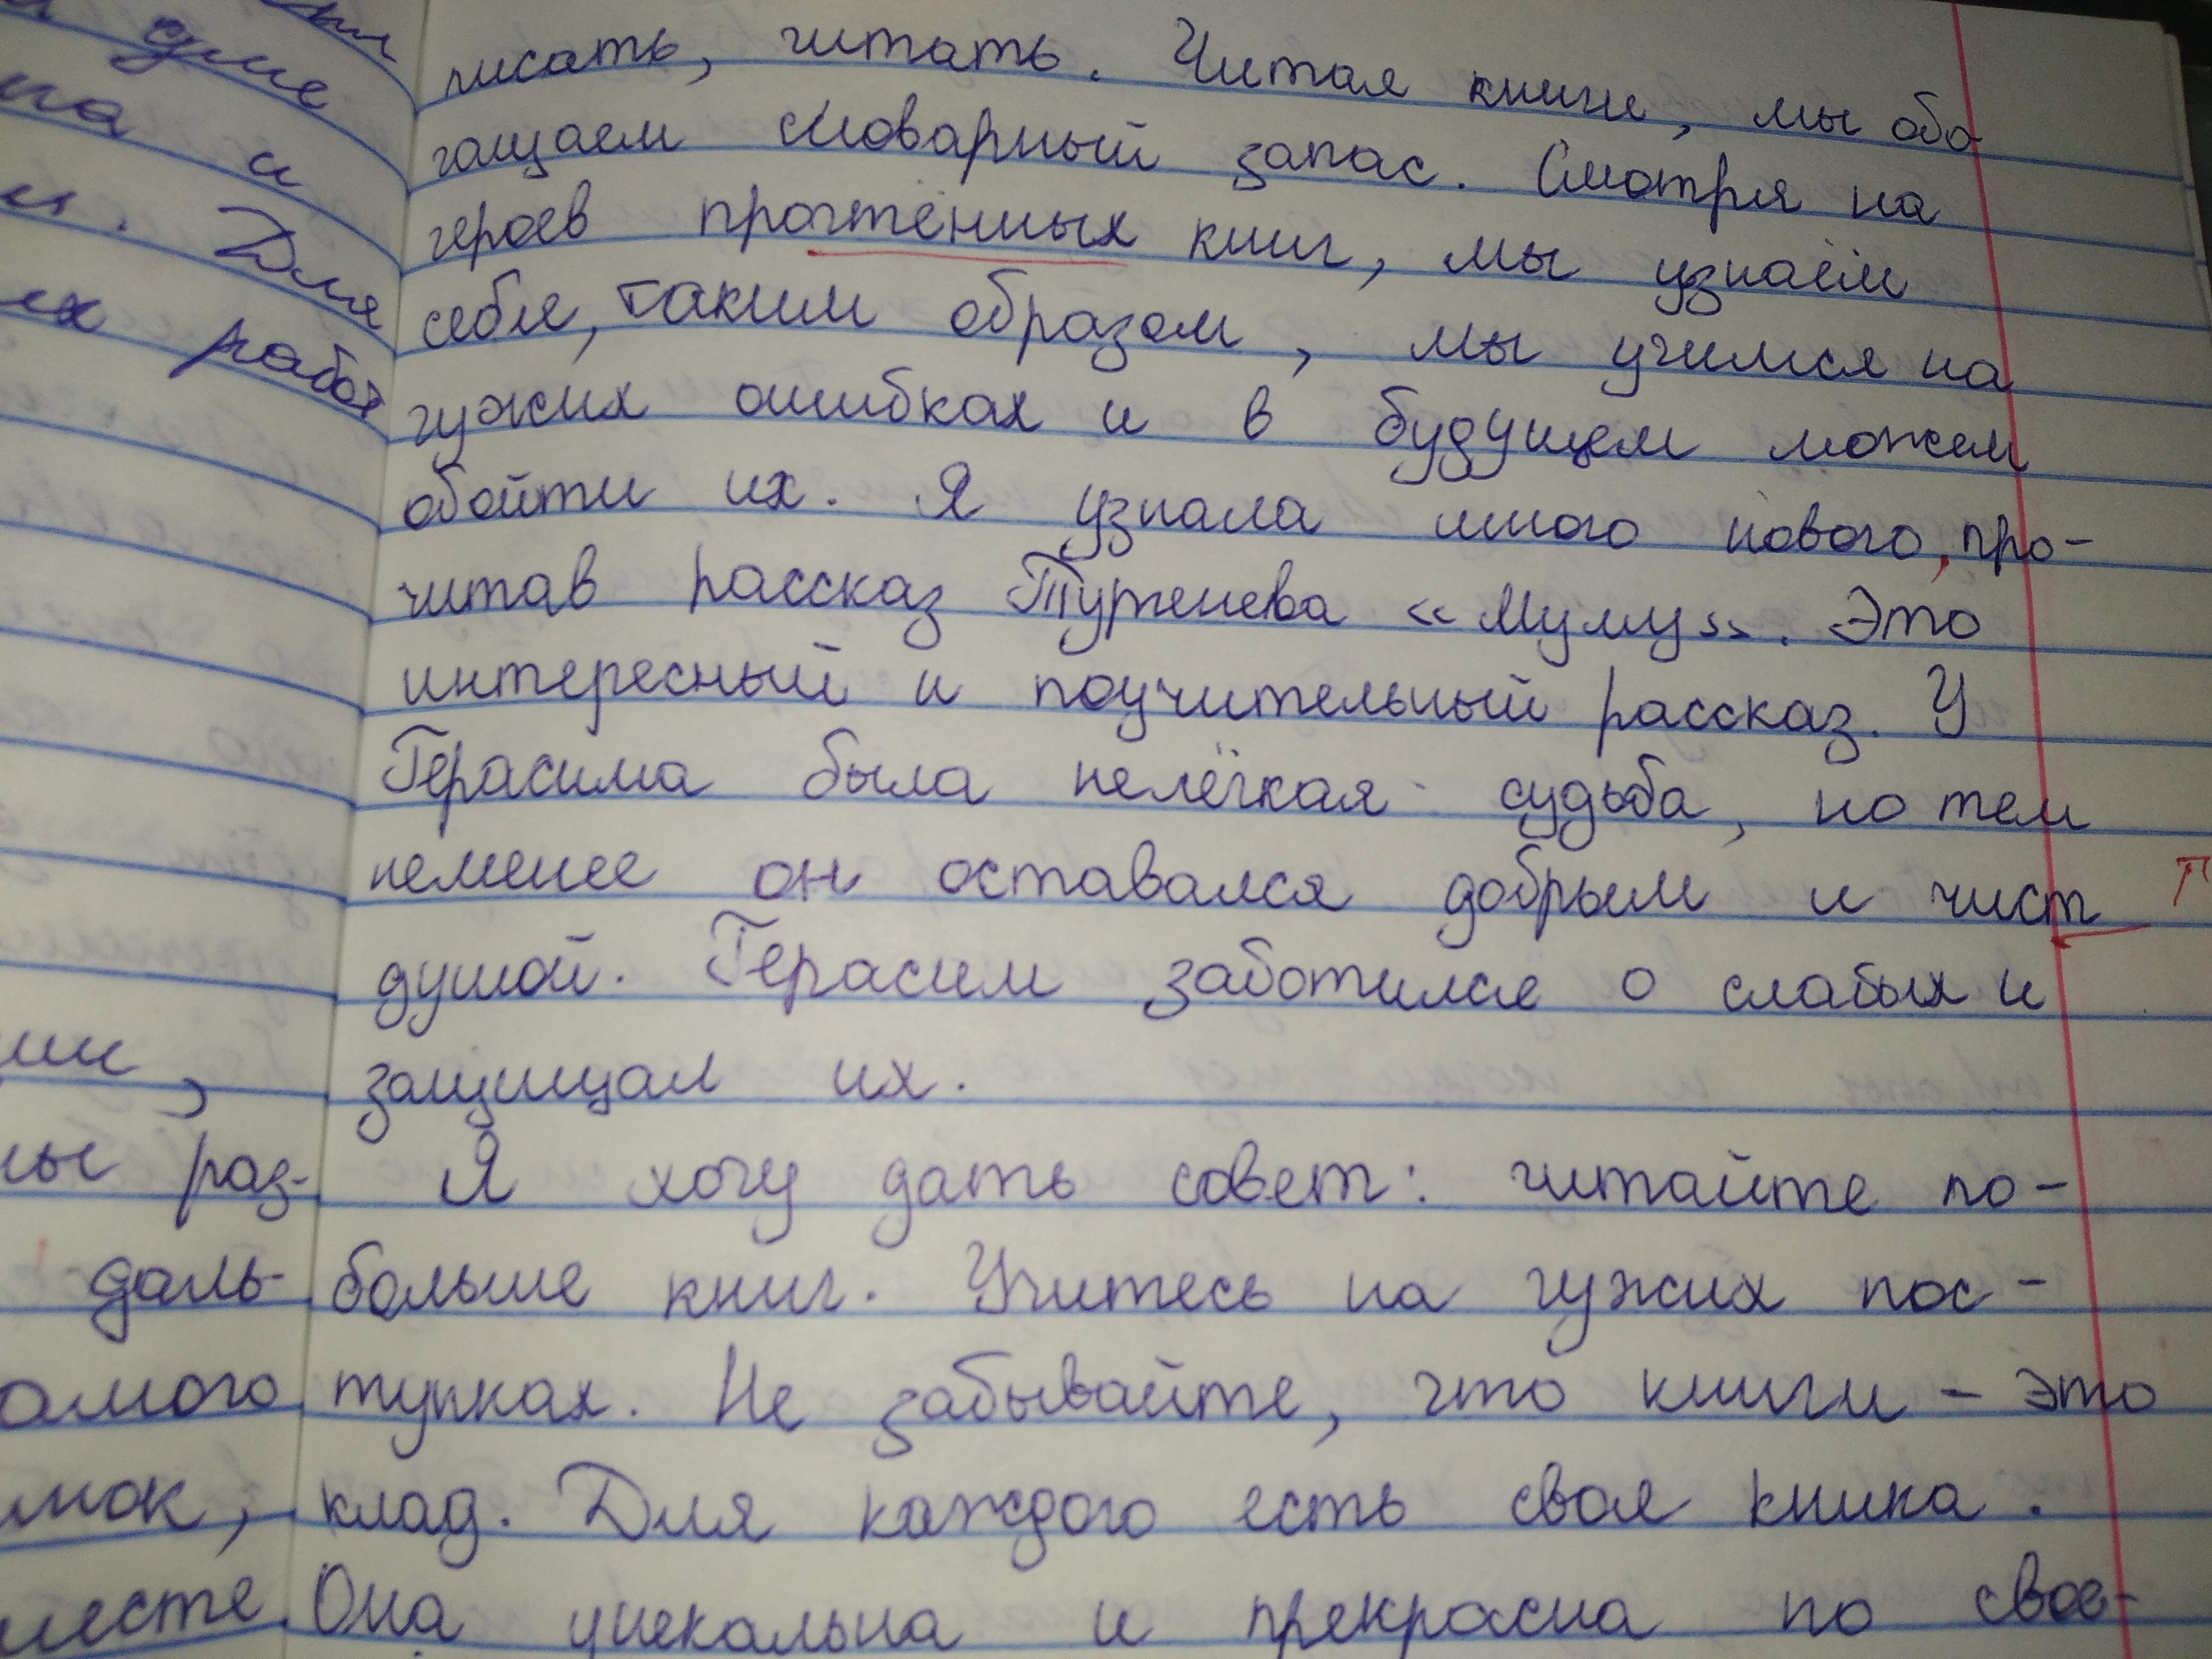 писать, читать. Читая книги, мы обо
гащаем словарный запас. Смотря на
героев прочтённых книг, мы узнаём
себя, таким образом, мы учимся на
чужих ошибках и в будущем можем
обойти их. Я узнала много нового, про-
читав рассказ Тургенева «Муму». Это
интересный и поучительный рассказ. У
Герасима была нелёгкая судьба, но тем
неменее он оставался добрым и чист
душой. Герасим заботился о слабых и
защищал их.
Я хочу дать совет: читайте по-
больше книг. Учитесь на чужих пос-
тупках. Не забывайте, что книги - это
клад. Для каждого есть своя книга.
Она уникальна и прекрасна по свое-